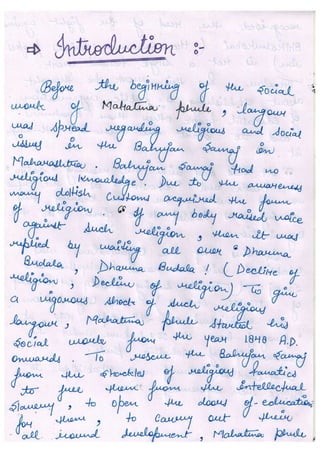 ⇒ Introduction :-
Before the beginning of the social
work of Mahatma phule, langour
was spread regarding religious and social
issues in the Bahujan Samaj in
Maharashtra. Bahujan Samaj had no
religious knowledge. Due to the awareness
many doltish customs acquired the form
of religion. If any body raised voice
against such religion, then it was
replied by waiting all over "Dharma
Budala, Dharma Budala! (Decline of
religion, Decline of religion) To give
a vigorous shock of such religious
langour, Mahatma phule started his
social work from the year 1848 A.D.
onwards. To rescue the Bahujan Samaj
from the shockles of religious fanatics
to free them from the intellectual
slavery, to open the doors of education
for them, to carry out their
all round development, Mahatma phule